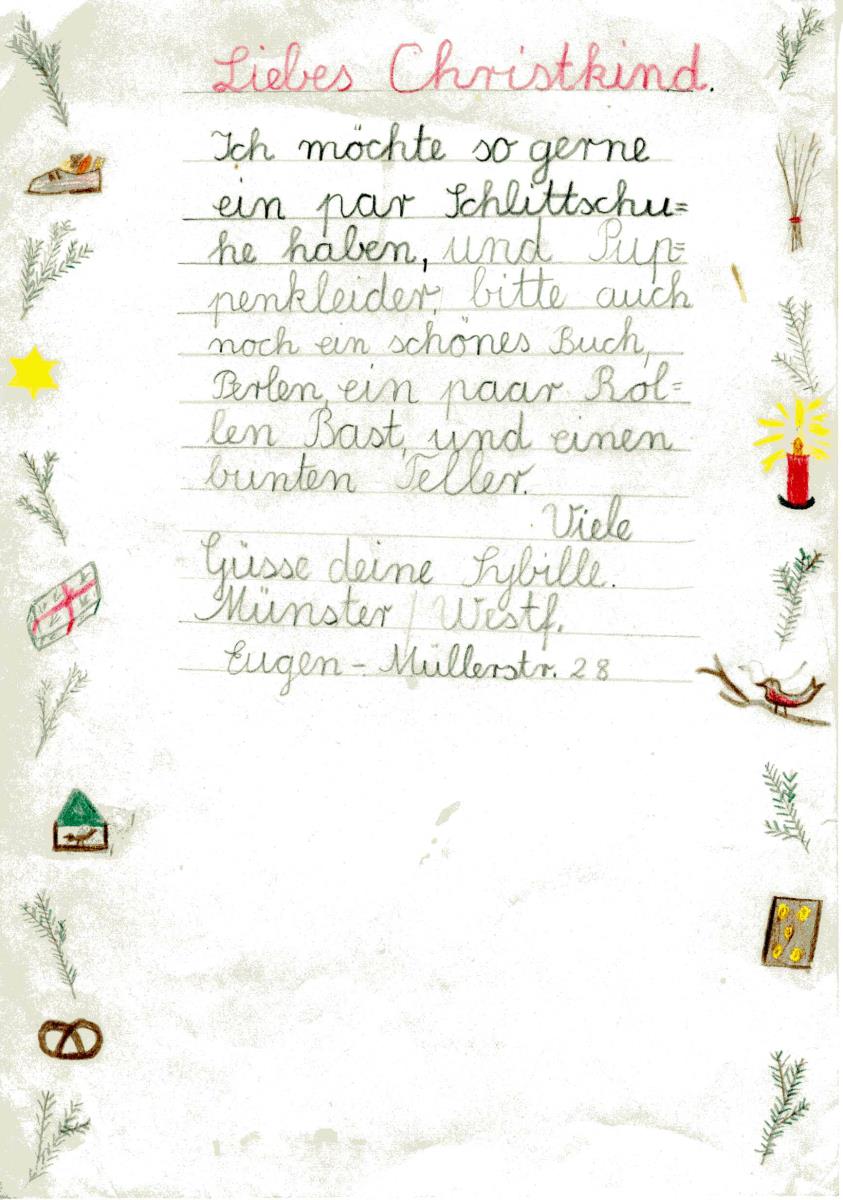 Liebes Christkind.
Ich möchte so gerne
ein par Schlittschu=
he haben, und Pup=
penkleider, bitte auch
noch ein schönes Buch,
Perlen, ein paar Rol=
len Bast, und einen
bunten Teller.
Viele
Güsse deine Sybille.
Münster / Westf.
Eugen-Müllerstr. 28